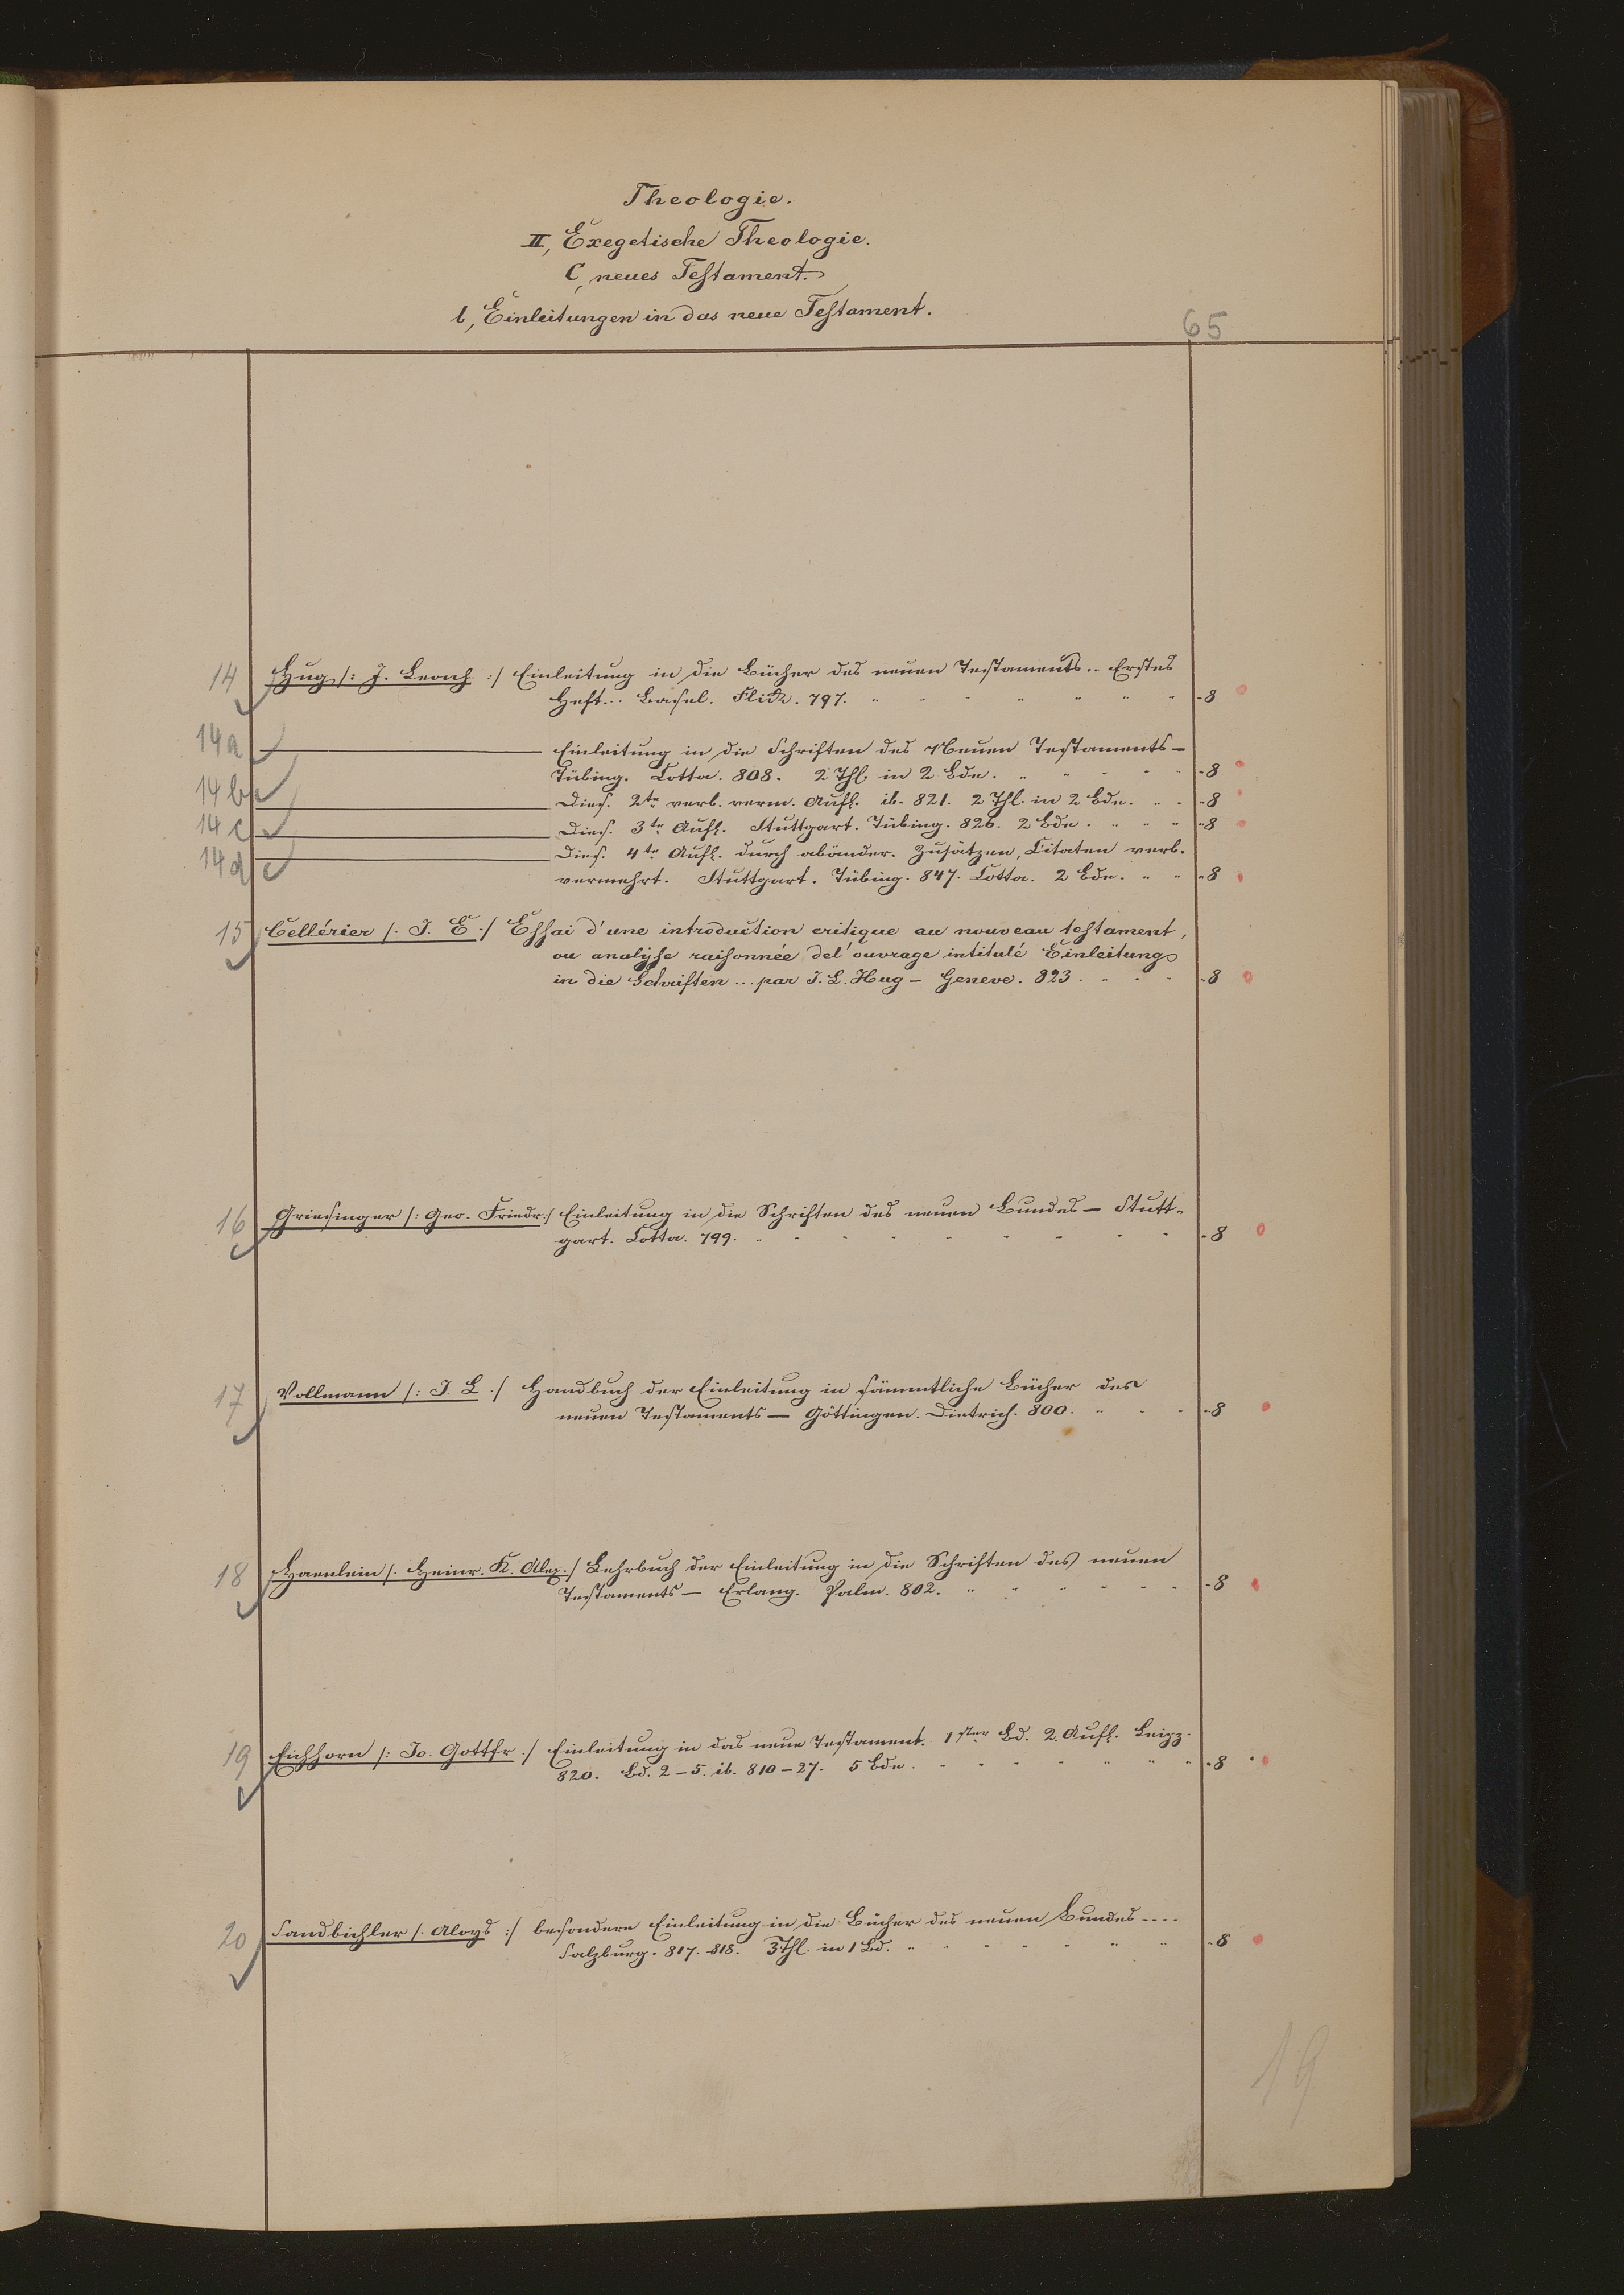 Theologie.
II, Exegetische Theologie.
C, neues Testament.
b, Einleitungen in das neue Testament.
65
14 Hug /: J. Leonh. :/ Einleitung in die Bücher des neuen Testaments .. Erstes
Heft... Basel. Flick. 797. -8
14a Einleitung in die Schriften des Neuen Testaments —
Tübing. Cotta. 808. 2 Thl. in 2 Bde. -8
14b Dies. 2te verb. verm. Aufl. ib. 821. 2 Thl. in 2 Bde. -8
14c Dies. 3te Aufl. Stuttgart. Tübing. 826. 2 Bde. -8
14d Dies. 4te Aufl. durch abänder. Zusätzen, Citaten verb.
vermehrt. Stuttgart. Tübing. 847. Cotta. 2 Bde. -8
15 Cellérier /: J. E :/ Essai d'une introduction critique au nouveau testament,
ou analyse raisonnée del'ouvrage intitulé Einleitung
in die Schriften ... par J. L. Hug — Geneve. 823. -8
16 Griesinger /: Geo. Friedr :/ Einleitung in die Schriften des neuen Bundes — Stutt-
gart. Cotta. 799. -8
17 Vollmann /: J L :/ Handbuch der Einleitung in sämmtliche Bücher des
neuen Testaments — Göttingen. Dietrich. 800. -8
18 Haenlein /: Heinr. K. Alex. :/ Lehrbuch der Einleitung in die Schriften des neuen
Testaments — Erlang. Palm. 802. -8
19 Eichhorn /: Jo. Gottfr :/ Einleitung in das neue Testament. 1ster Bd. 2. Aufl. Leipz.
820. Bd. 2-5. ib. 810-27. 5 Bde. -8
20 Sandbichler /: Aloys :/ besondere Einleitung in die Bücher des neuen Bundes ....
Salzburg. 817. 818. 3 Thl. in 1 Bd. -8
19